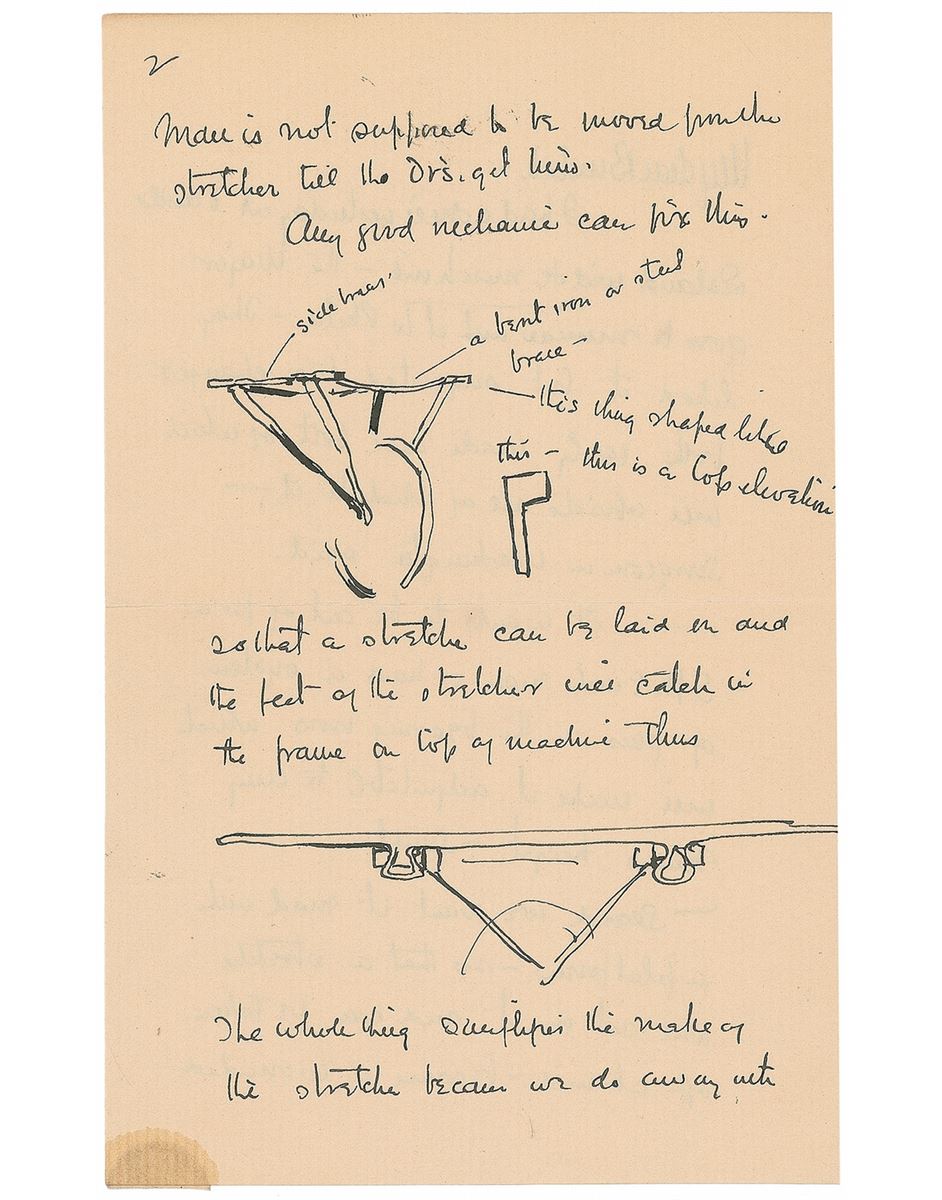 2
Man is not supposed to be moved from the
stretcher till the Drs. get him.
Any good mechanic can fix this.
side braces
a bent iron or steel
brace –
this thing shaped like
this – this is a top elevation
so that a stretcher can be laid on and
the feet of the stretcher will catch in
the frame on top of machine thus
The whole thing simplifies the make of
the stretcher because we do away with